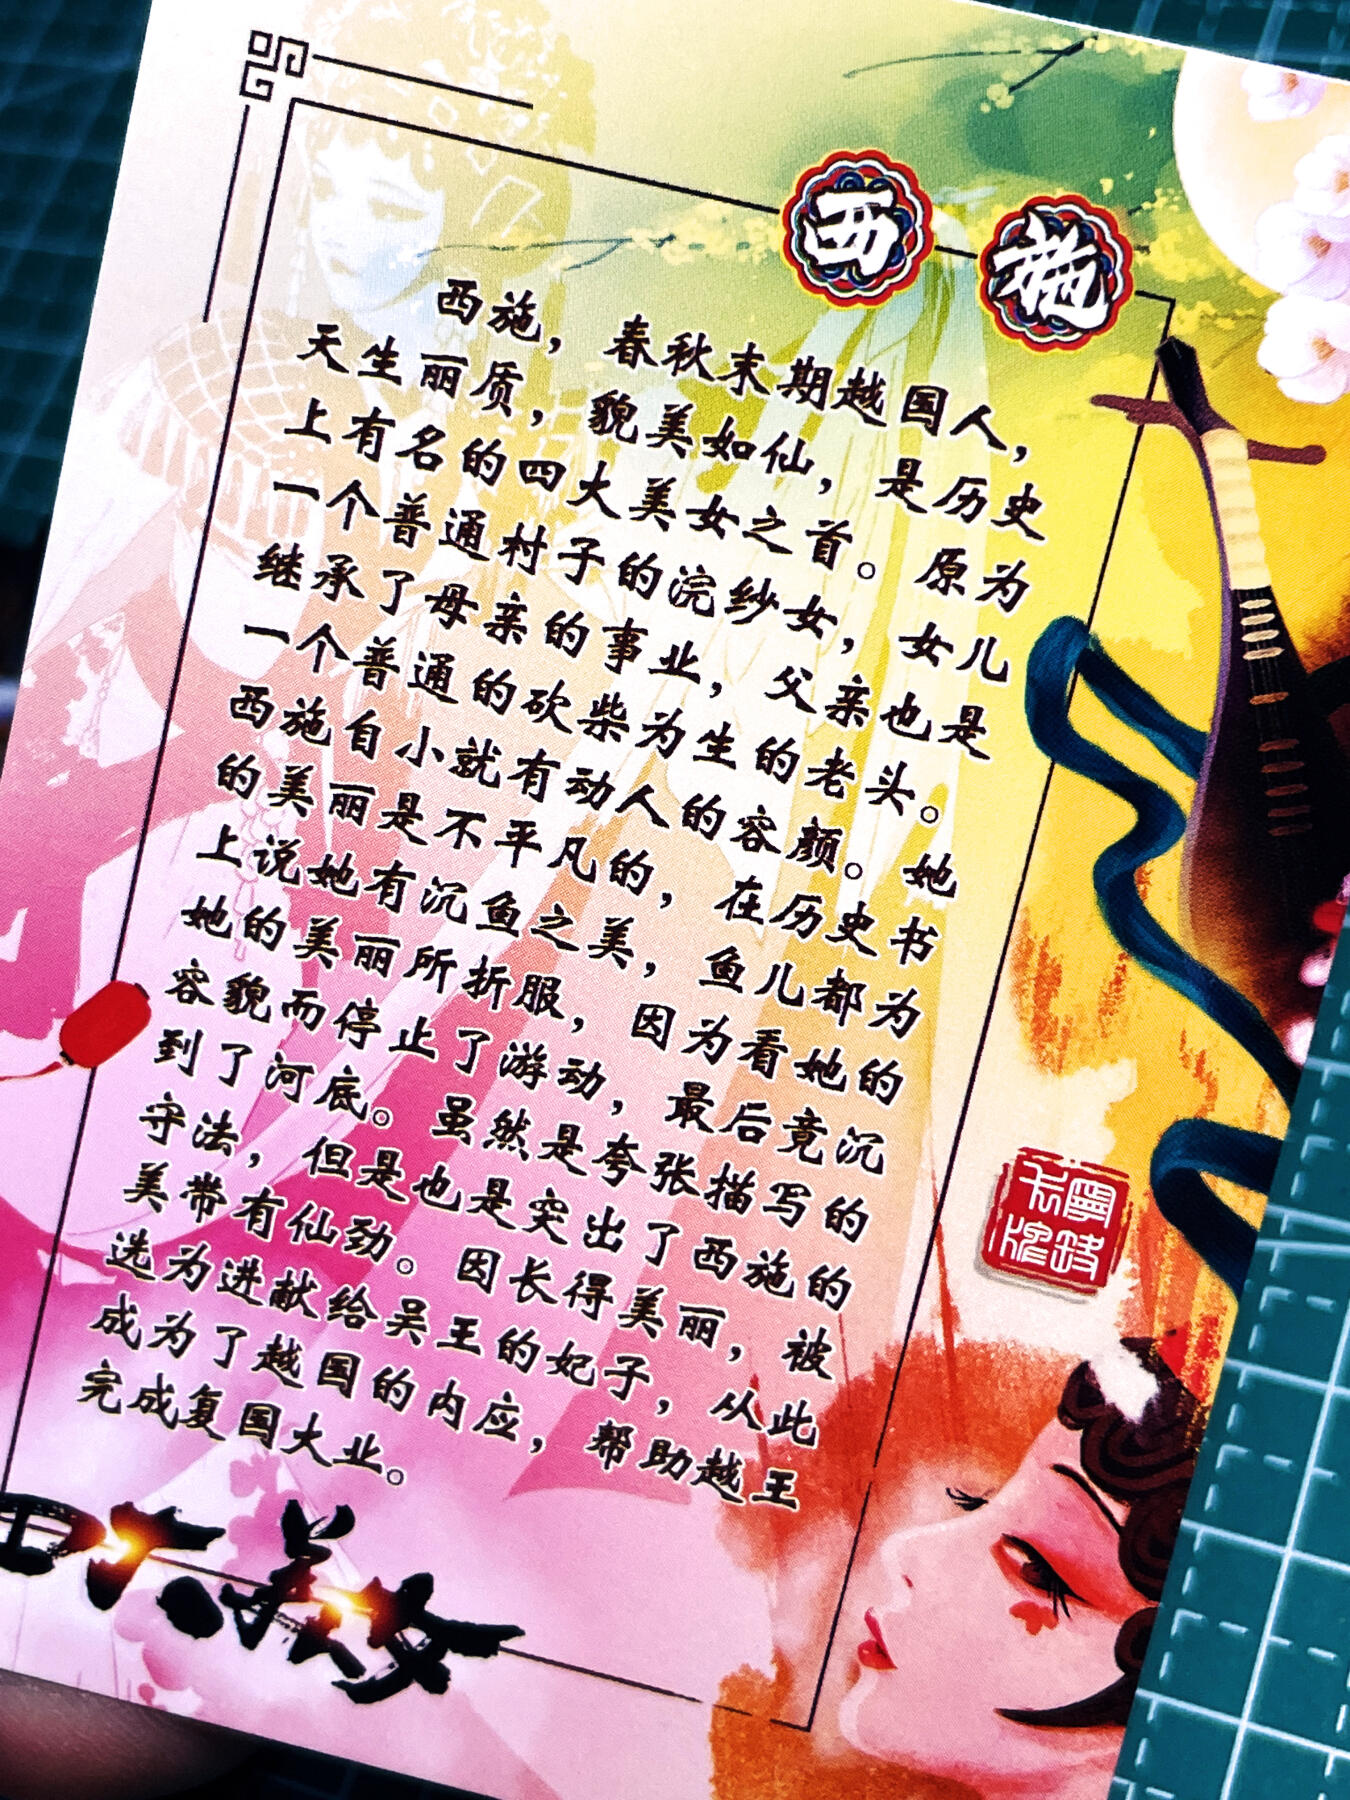 西施
西施，春秋末期越国人，
天生丽质，貌美如仙，是历史
上有名的四大美女之首。原为
一个普通村子的浣纱女，女儿
继承了母亲的事业，父亲也是
一个普通的砍柴为生的老头。
西施自小就有动人的容颜。她
的美丽是不平凡的，在历史书
上说她有沉鱼之美，鱼儿都为
她的美丽所折服，因为看她的
容貌而停止了游动，最后竟沉
到了河底。虽然是夸张描写的
守法，但是也是突出了西施的
美带有仙劲。因长得美丽，被
选为进献给吴王的妃子，从此
成为了越国的内应，帮助越王
完成复国大业。
四大美女